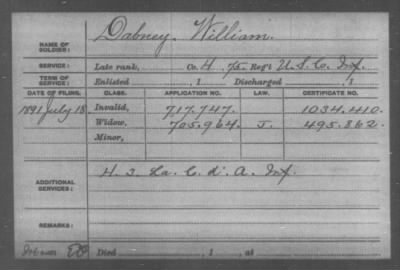 NAME OF SOLDIER: Dabney, William.
SERVICE: Late rank, Co. H, 75 Reg't U.S.C. Inf.
TERM OF SERVICE: Enlisted , 1 Discharged , 1
DATE OF FILING. CLASS. APPLICATION NO. LAW. CERTIFICATE NO.
1891 July 18. Invalid, 717.747. 1034.410.
Widow, 705.964. J. 495.862.
Minor,
ADDITIONAL SERVICES: H. 3. La. C. d' A. Inf.
REMARKS:
Died , 1 , at